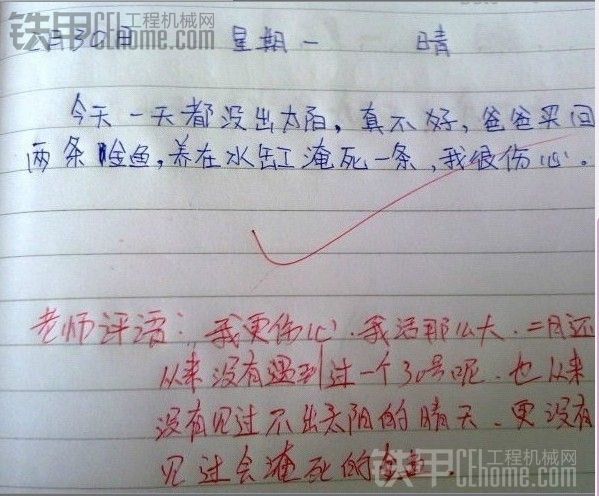 铁甲 工程机械网 CEhome.com
月30日 星期一 晴
今天一天都没出太阳，真不好，爸爸买回
两条金鱼，养在水缸淹死一条，我很伤心。
老师评语：我更伤心．我活那么大．二月还
从来没有遇到过一个30号呢．也从来
没有见过不出太阳的晴天．更没有
见过会淹死的金鱼．
铁甲 工程机械网 CEhome.com